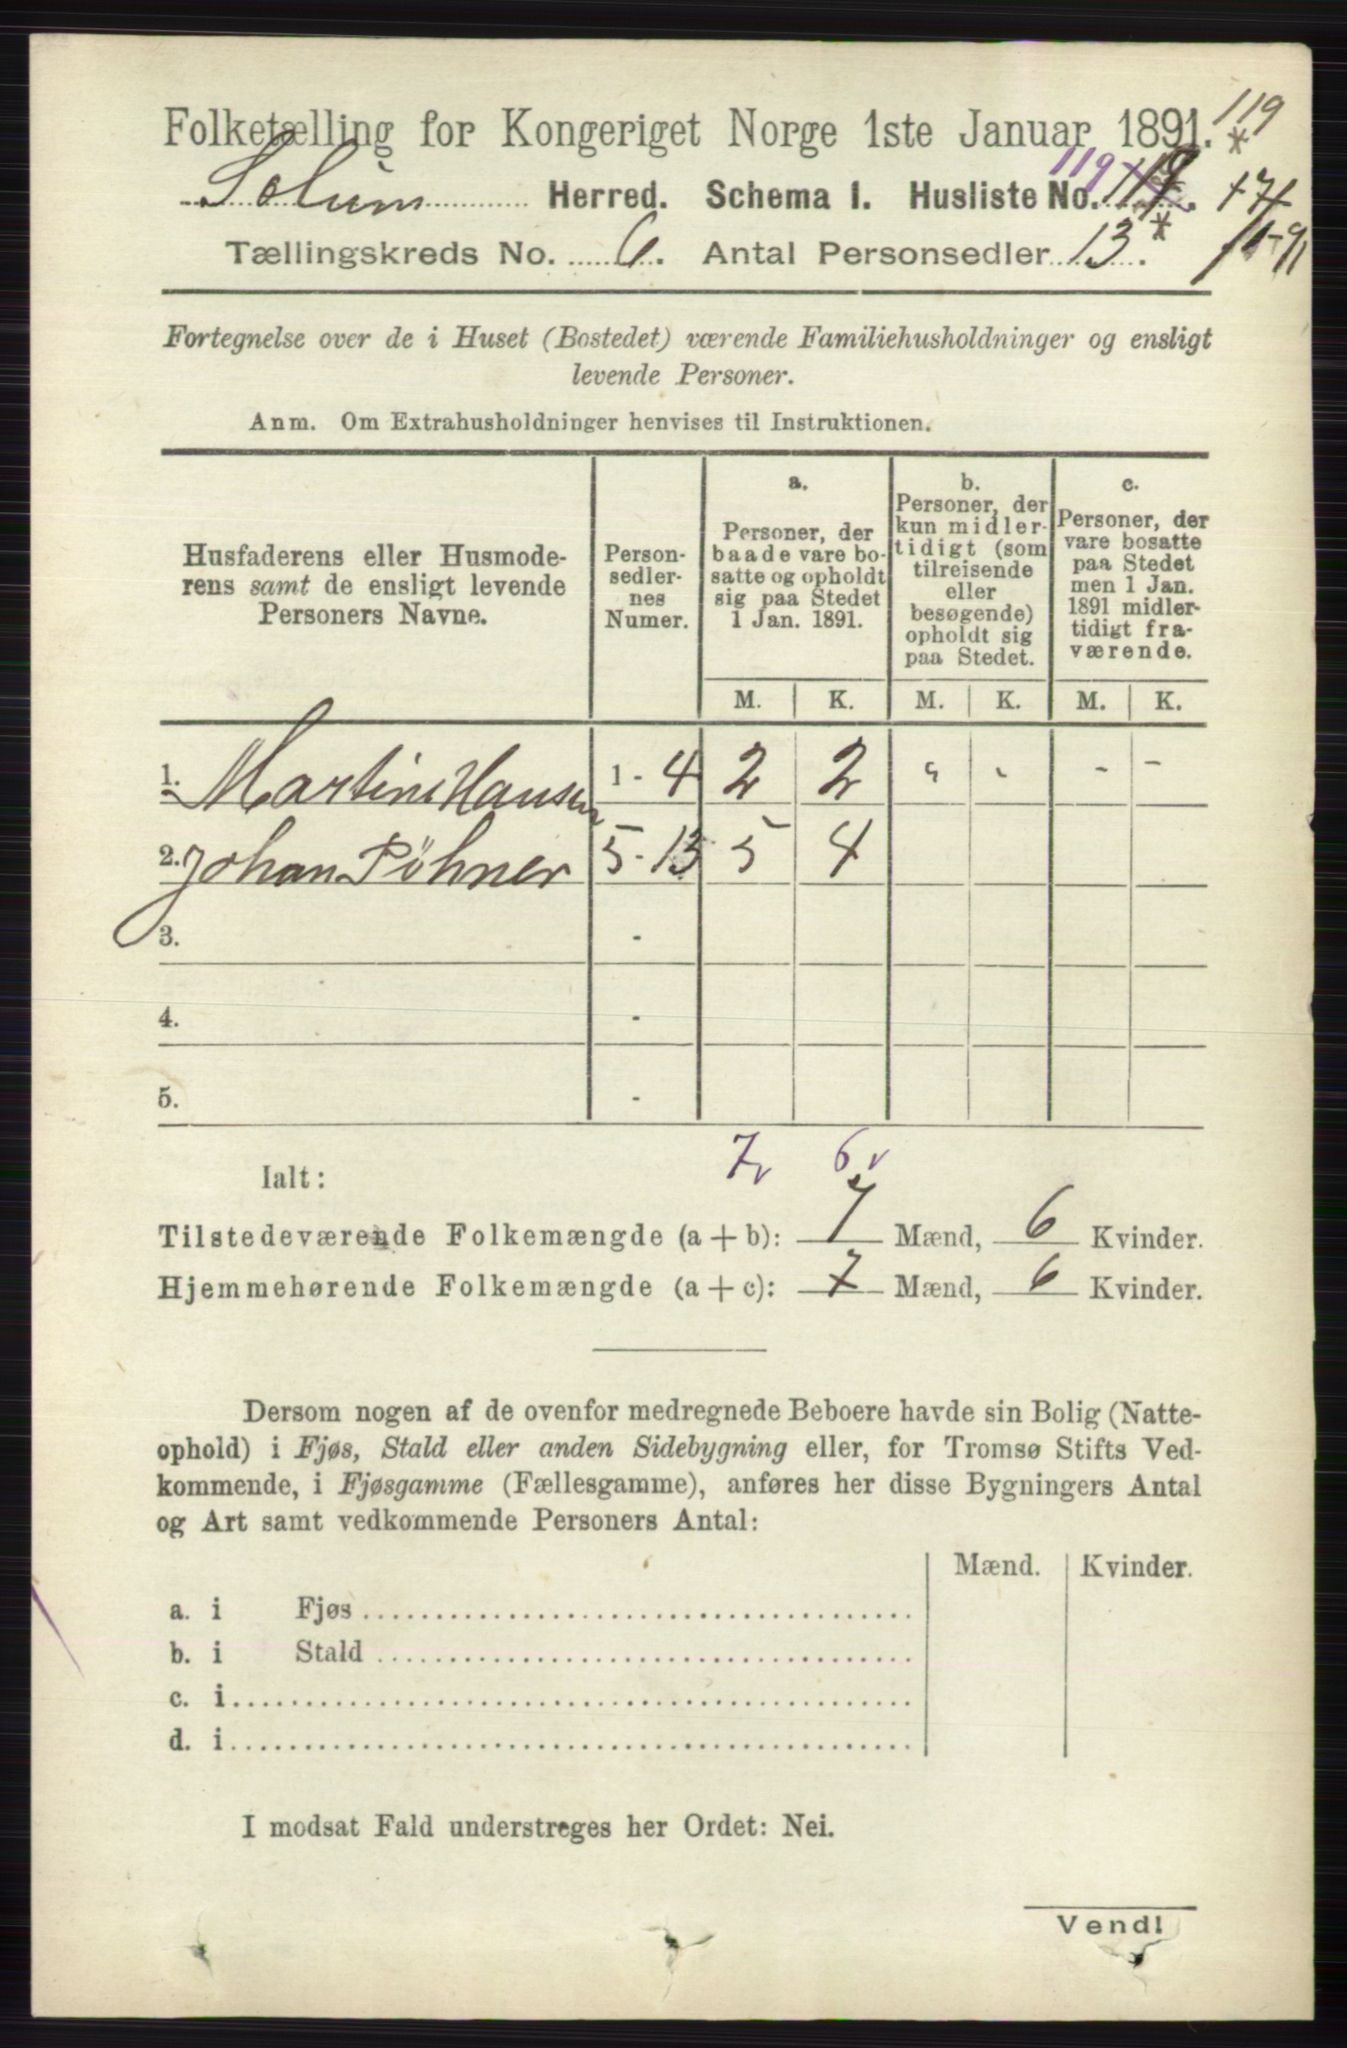 Folketælling for Kongeriget Norge 1ste Januar 1891. 119
*
Solum Herred. Schema I. Husliste No. 119 119
Tællingskreds No. 6. Antal Personsedler 13*.
Fortegnelse over de i Huset (Bostedet) værende Familiehusholdninger og ensligt
levende Personer.
Anm. Om Extrahusholdninger henvises til Instruktionen.
Husfaderens eller Husmode-
rens samt de ensligt levende
Personers Navne.
Person-
sedler-
nes
Numer.
a.
Personer, der
baade vare bo-
satte og opholdt
sig paa Stedet
1 Jan. 1891.
b.
Personer, der
kun midler-
tidigt (som
tilreisende
eller
besøgende)
opholdt sig
paa Stedet.
c.
Personer, der
vare bosatte
paa Stedet
men 1 Jan.
1891 midler-
tidigt fra-
værende.
M. K. M. K. M. K.
1. Martin Hansen 1 - 4 2 2 " " - -
2. Johan Pöhner 5 - 13 5 4
3. -
4. -
5. -
7v 6v
Ialt:
Tilstedeværende Folkemængde (a + b): 7 Mænd, 6 Kvinder.
Hjemmehørende Folkemængde (a + c): 7 Mænd, 6 Kvinder.
Dersom nogen af de ovenfor medregnede Beboere havde sin Bolig (Natte-
ophold) i Fjøs, Stald eller anden Sidebygning eller, for Tromsø Stifts Ved-
kommende, i Fjøsgamme (Fællesgamme), anføres her disse Bygningers Antal
og Art samt vedkommende Personers Antal:
Mænd. Kvinder.
a. i Fjøs
b. i Stald
c. i
d. i
I modsat Fald understreges her Ordet: Nei.
Vend!